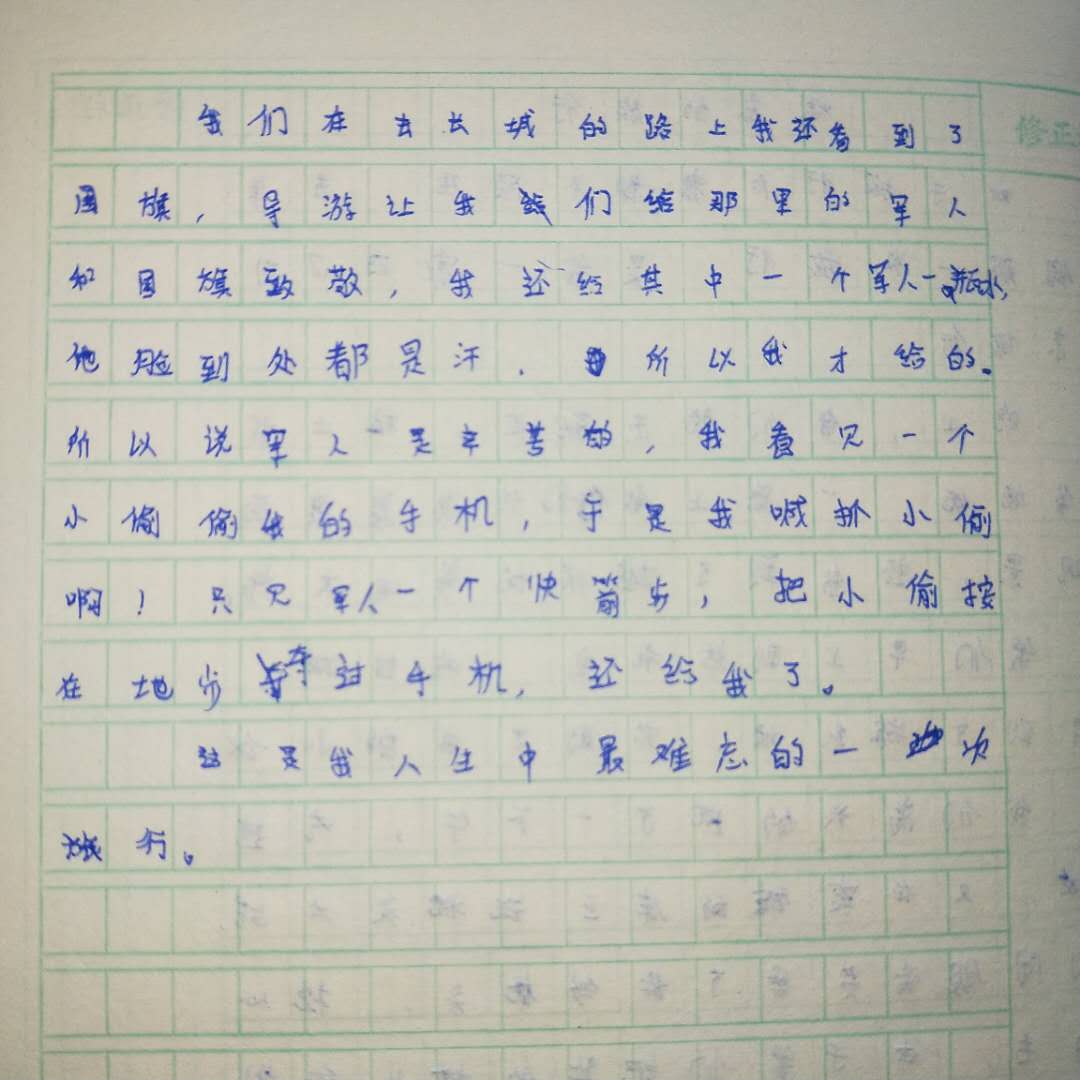 我们在去长城的路上我还看到了
国旗，导游让我们给那里的军人
和国旗致敬，我还给其中一个军人一瓶水，
他脸到处都是汗．所以我才给的。
所以说军人是辛苦的，我看见一个
小偷偷我的手机，于是我喊抓小偷
啊！只见军人一个快箭步，把小偷按
在地步夺过手机，还给我了。
这是我人生中最难忘的一次
旅行。
修正